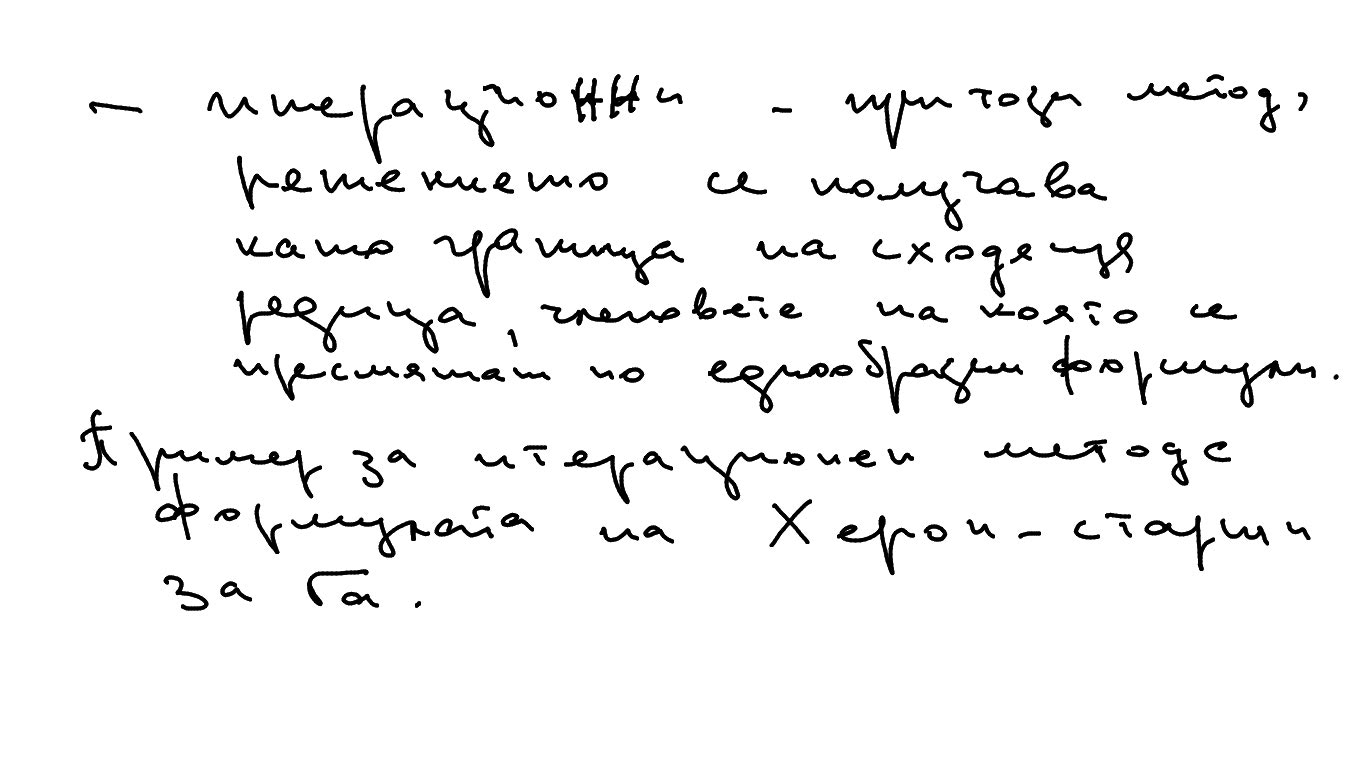 — итерационни - при този метод,
решението се получава
като граница на сходяща
редица, членовете на която се
пресмятат по еднообразни формули.
Пример за итерационен метод е
формулата на Херон-старши
за √a.